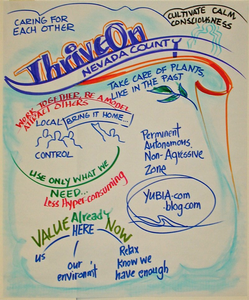 CARING FOR
EACH OTHER
CULTIVATE CALM,
CONSCIOUSNESS
ThriveOn
NEVADA COUNTY
TAKE CARE OF PLANTS,
LIKE IN THE PAST
WORK TOGETHER, BE A MODEL
ATTRACT OTHERS
LOCAL
BRING IT HOME...
CONTROL
Perminent
Autonomous,
Non-Agressive
Zone
USE ONLY WHAT WE
NEED...
Less Hyper-consuming
YUBIA.com
.blog.com
VALUE Already
HERE NOW
us
our
enviroment
Relax
Know we
have enough